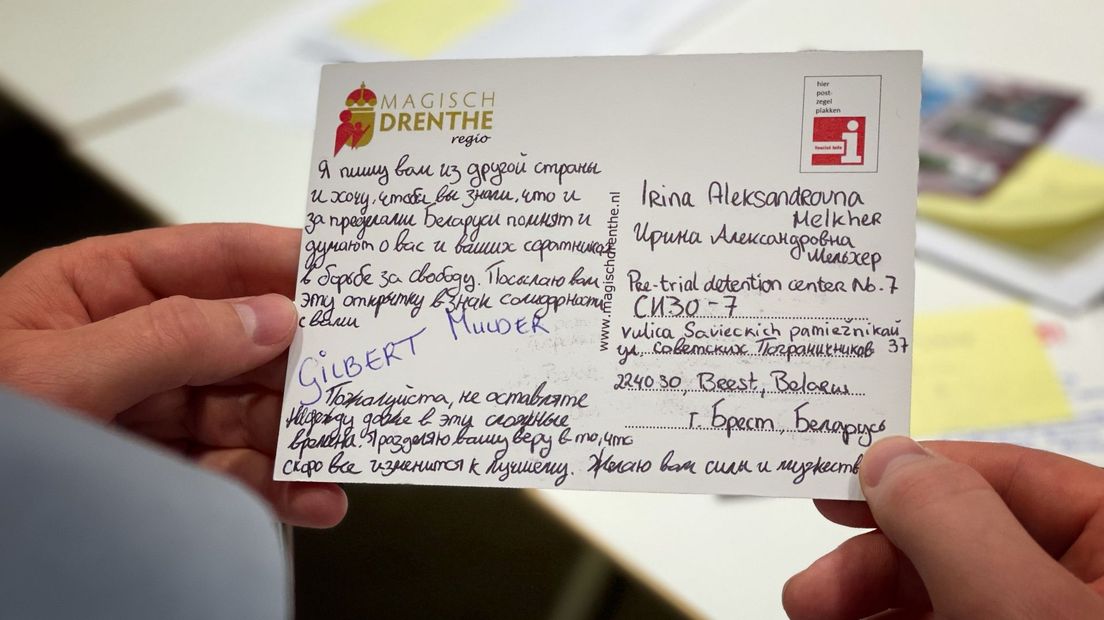 MAGISCH
DRENTHE
regio
Я пишу вам из другой страны
и хочу, чтобы вы знали, что и
за пределами Беларуси помнят и
думают о вас и ваших соратниках
в борьбе за свободу. Посылаю вам
эту открытку в знак солидарности
с вами
GILBERT MULDER
Пожалуйста, не оставляте
надежду даже в эту сложные
времена. Я разделяю вашу веру в то, что
скоро все изменится к лучшему. Желаю вам силы и мужеств
www.magischdrenthe.nl
hier
post-
zegel
plakken
tourist info
i
Irina Aleksandrovna
Melkher
Ирина Александровна
Мельхер
Pre-trial detention center Nb.7
СИЗО-7
vulica Savieckich pamiežnikaŭ
ул. Советских Пограничников 37
224030, Brest, Belarus
г. Брест, Беларусь